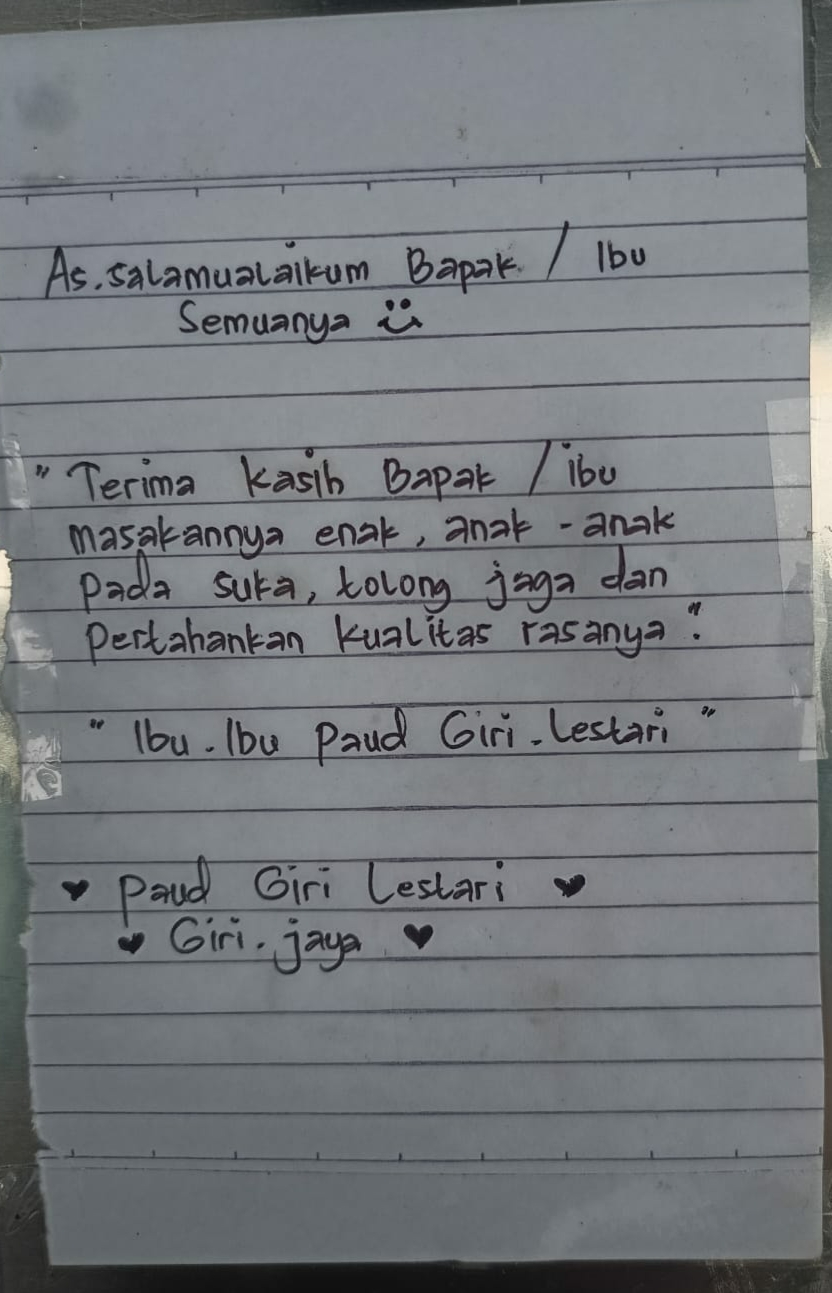 As.salamualaikum Bapak / Ibu
Semuanya
" Terima kasih Bapak / ibu
masakannya enak, anak - anak
pada suka, tolong jaga dan
Pertahankan kualitas rasanya ".
" Ibu.Ibu Paud Giri.Lestari "
♥ Paud Giri Lestari ♥
♥ Giri.jaya ♥